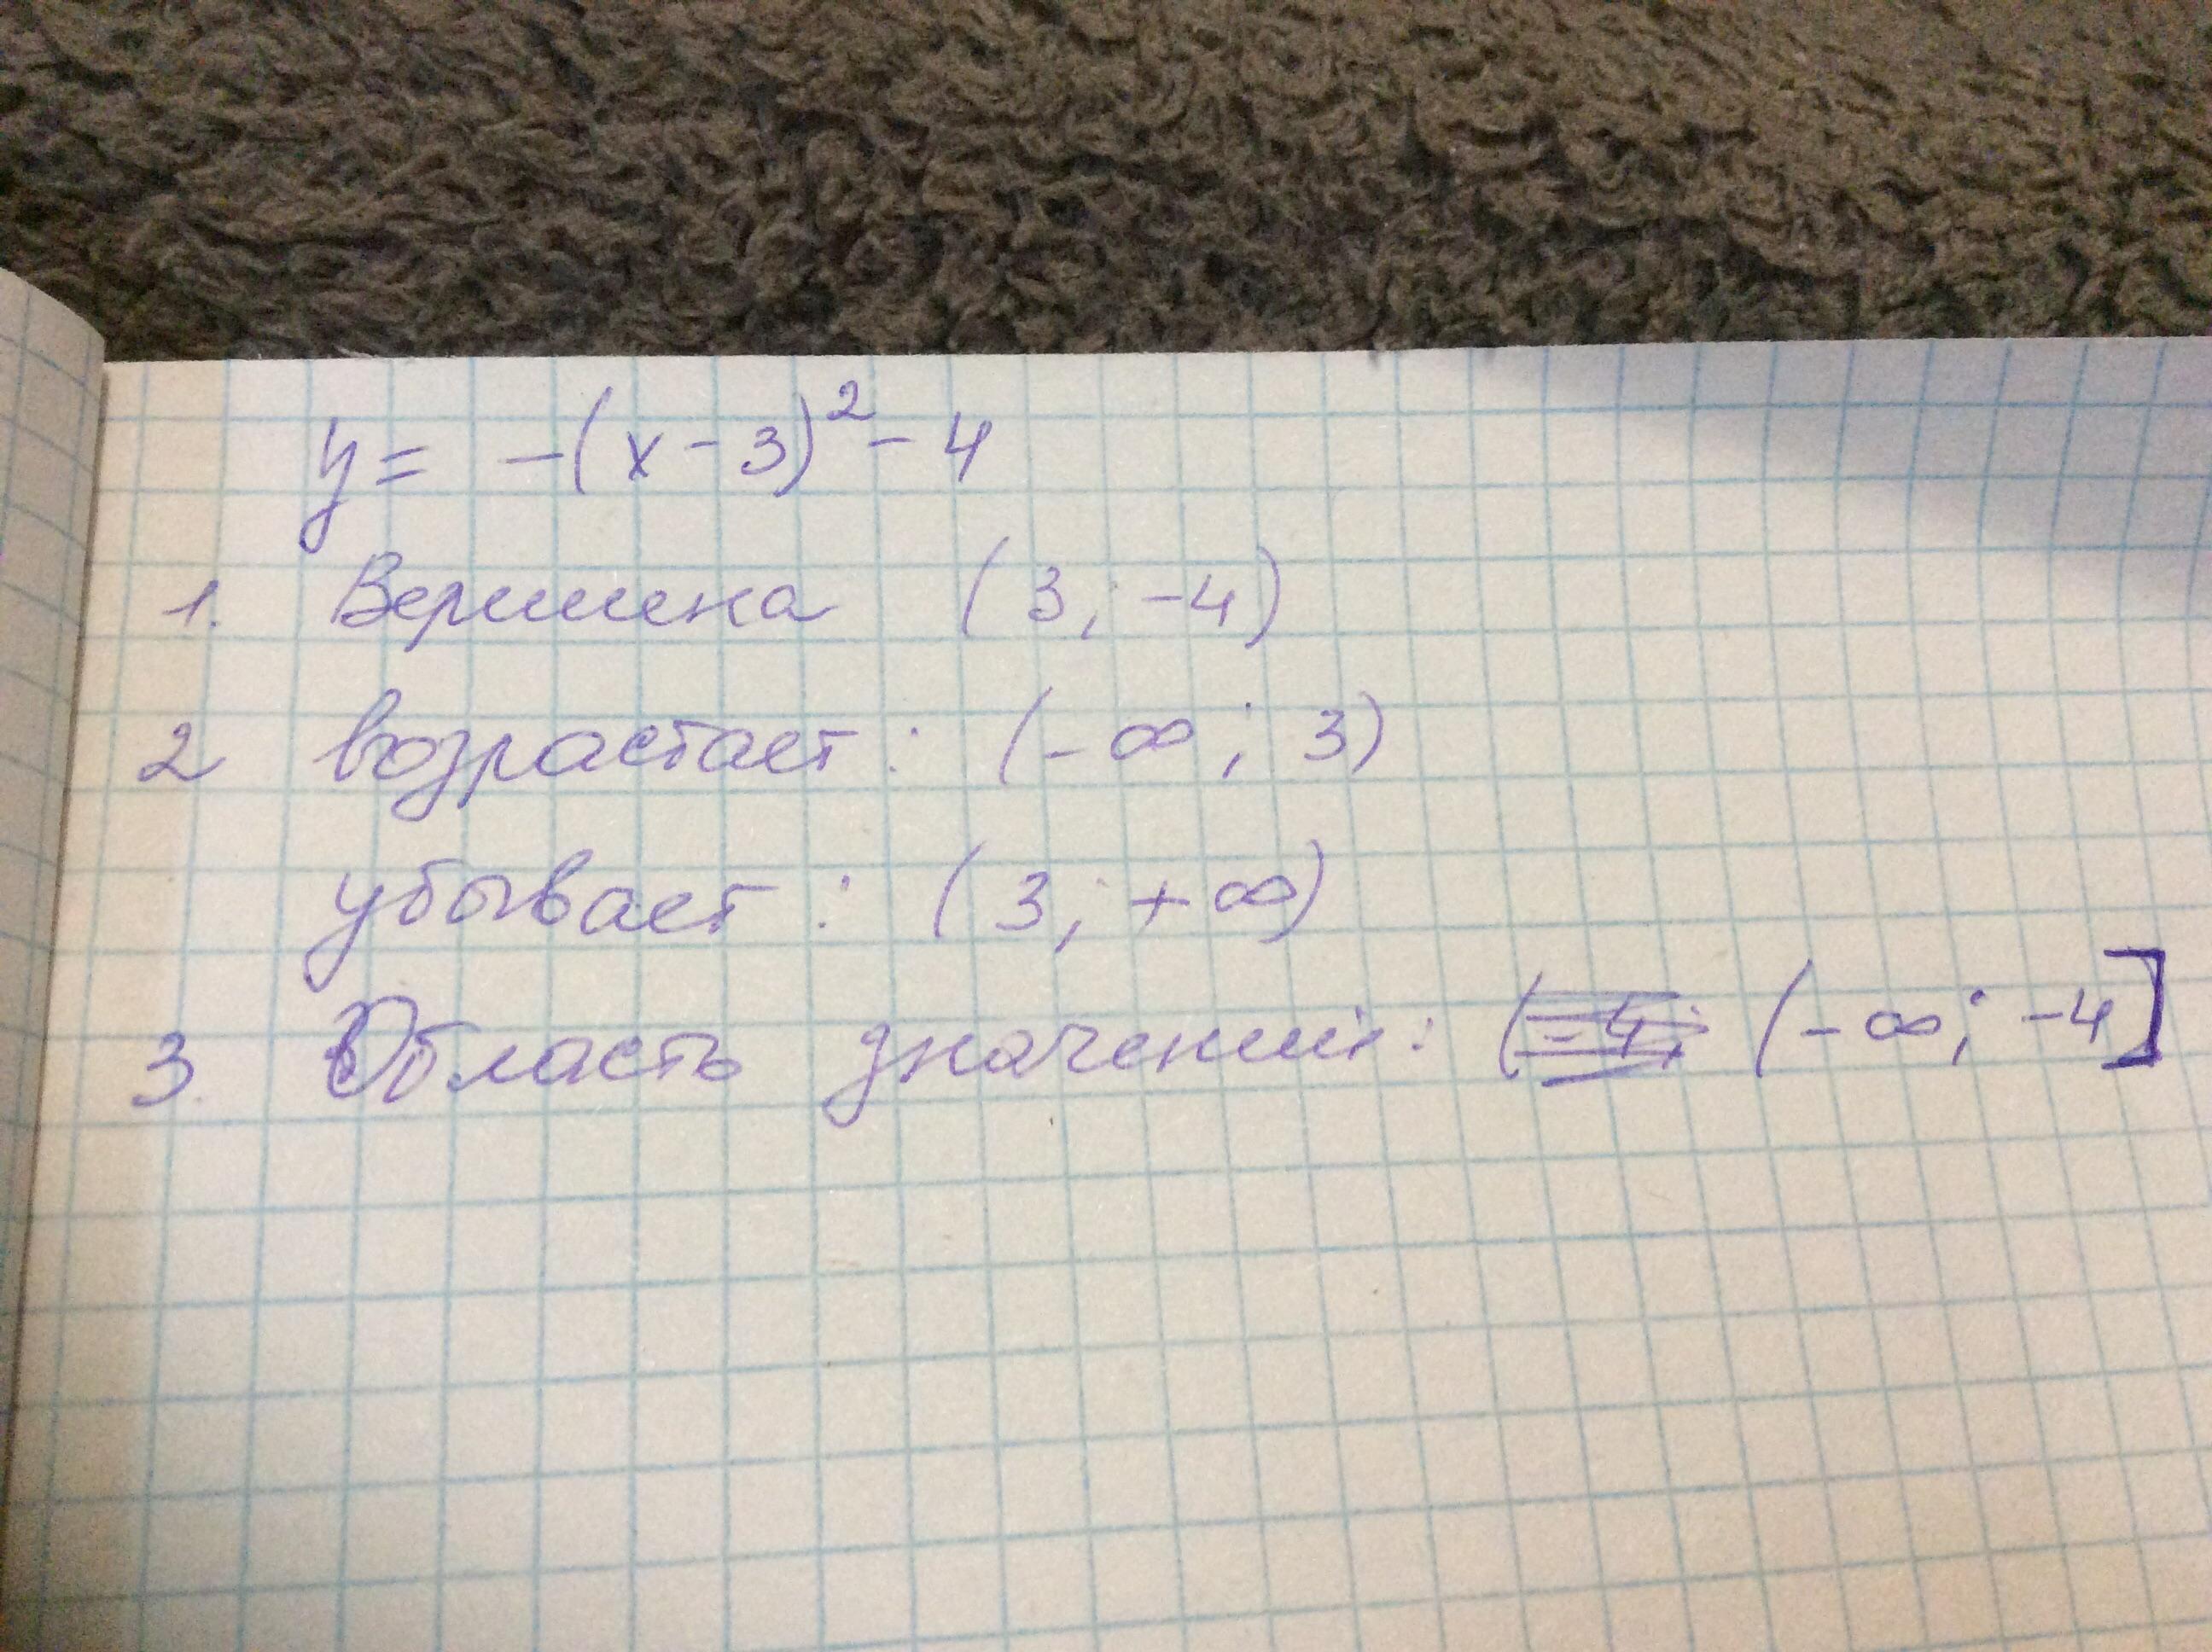 y = -(x-3)² - 4
1. Вершина (3; -4)
2 возрастает: (-∞; 3)
убывает: (3; +∞)
3. Область значений: (-4; (-∞; -4]